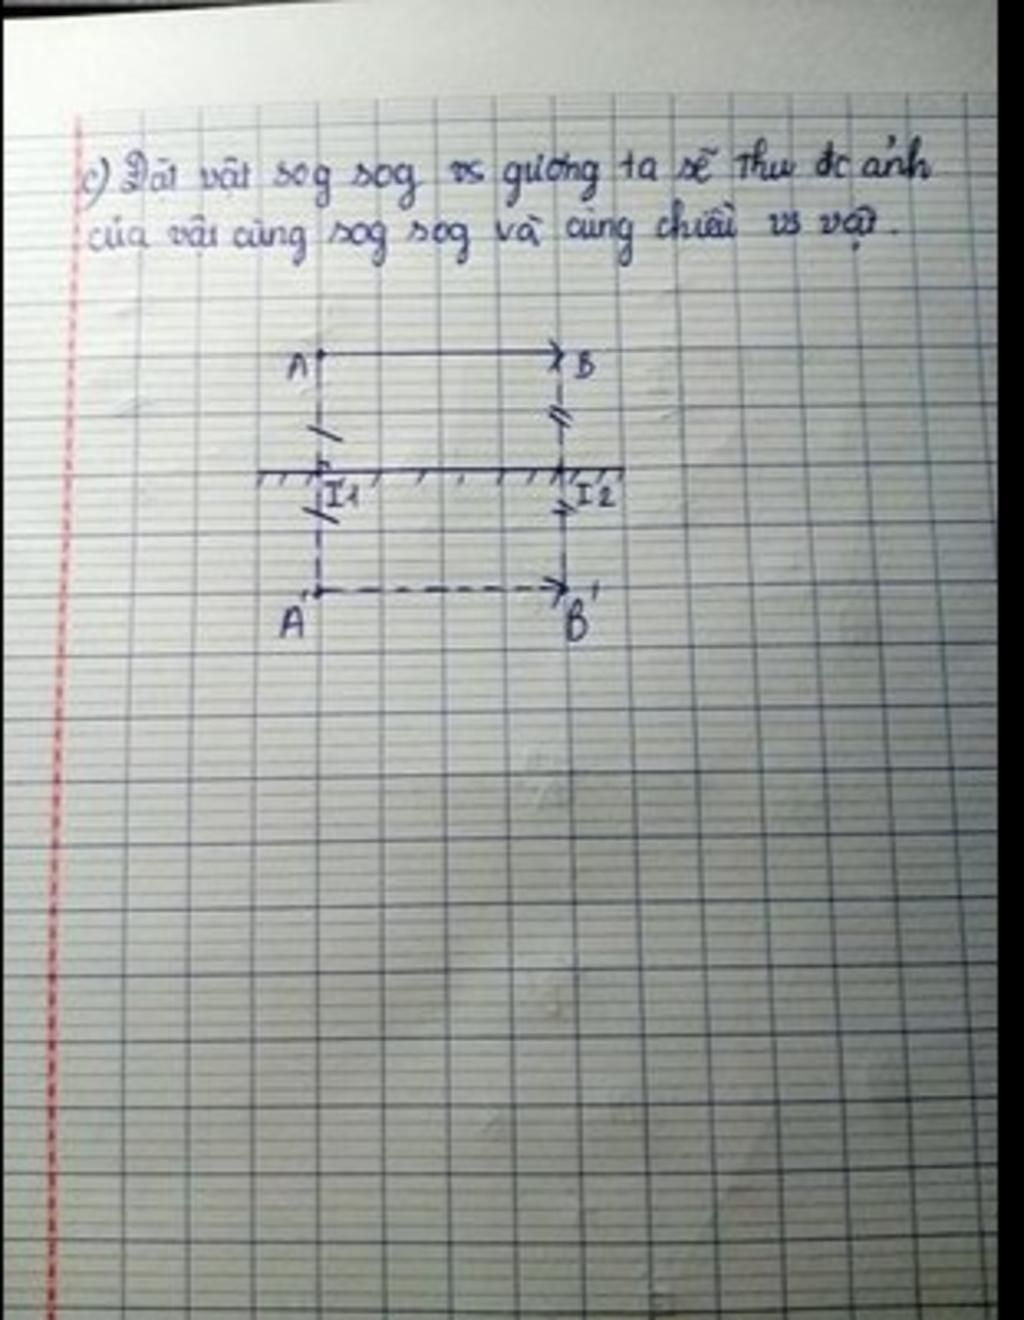 c) Đặt vật sog sog vs gương ta sẽ thu đc ảnh
của vật cùng sog sog và cùng chiều vs vật.
A B
I1 I2
A' B'